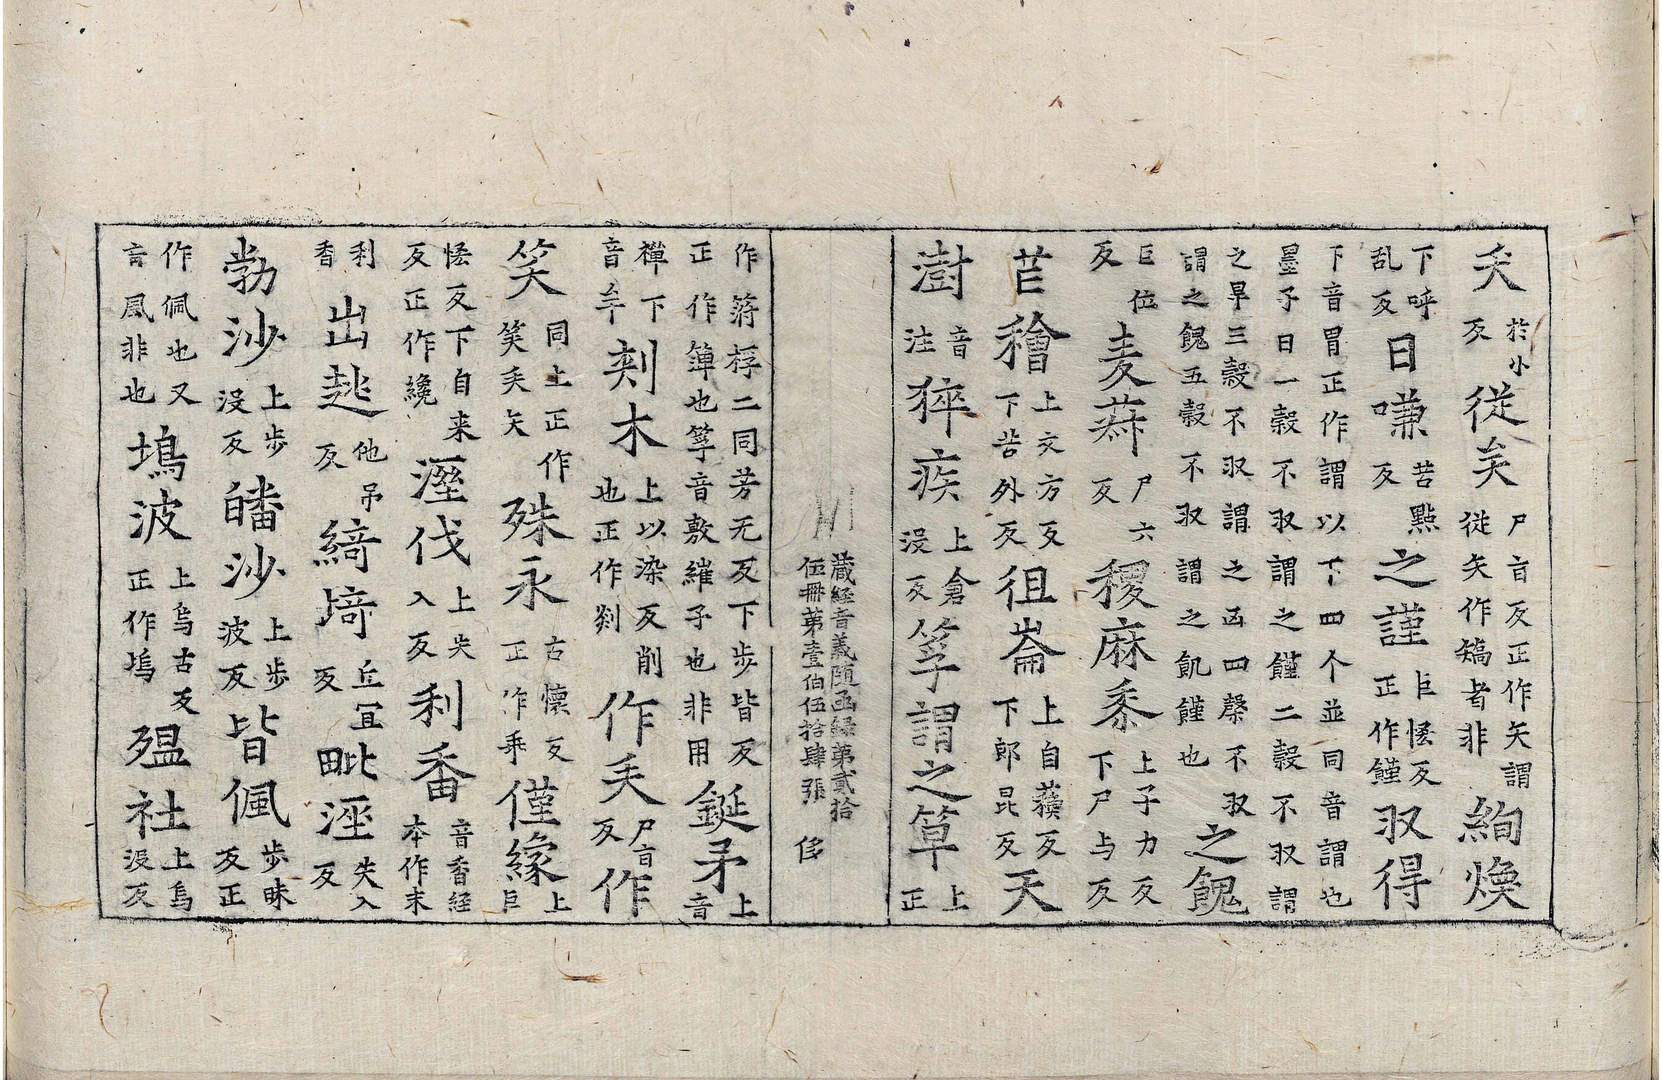 夭於小反從矣尸盲反正作矢謂從矢作矯者非絢煥
下呼乱反日嗛苦點反之謹巨㤦反正作饉収得
下音胃正作謂以下四个並同音謂也墨子曰一榖不収謂之饉二榖不収謂
之旱三榖不収謂之凾四罄不収謂之餽五榖不収謂之飢饉也之餽
巨位反麦䔳尸六反稷麻黍上子力反下尸与反
芒穭上文方反下苦外反徂崙上自蘓反下郎昆反天
澍音注猝疾上倉没反䇭謂之䈂上正
藏経音義随函録第貳拾伍冊第壹伯伍拾肆張 侈
作䈂桴二同芳无反下歩皆反正作簰也䇭音敷維子也非用鋋矛上音
禪下音牟剡木上以染反削也正作剡作夭尸盲反作
笑同上正作笑矣矢殊永古懷反正作乖僅緣上巨
㤦反下自来反正作纔㴔伐上失入反利番音香経本作耒
利香出趒他吊反綺埼丘冝反毗㴔失入反
勃沙上歩没反皤沙上歩波反皆佩歩昧反正
作佩也又言風非也塢波上烏古反正作塢殟社上烏没反